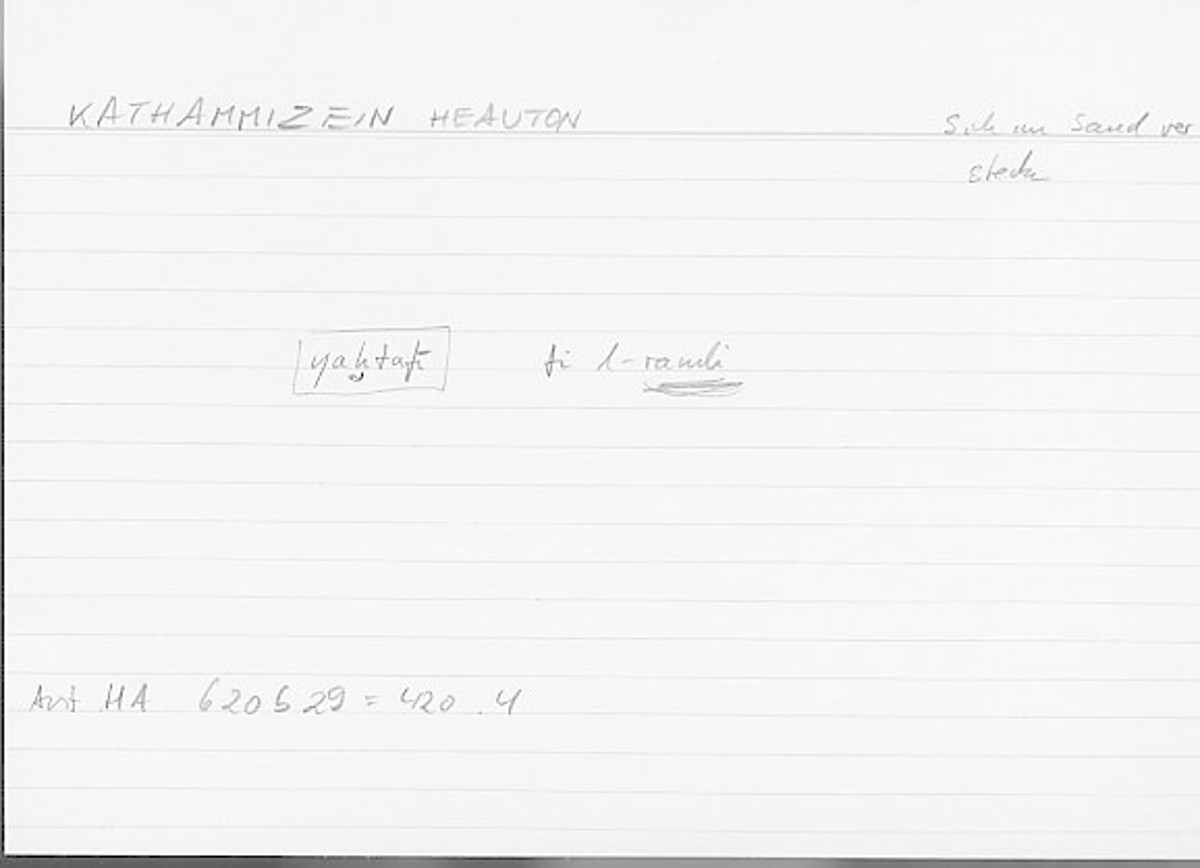 KATHAMMIZEIN HEAUTON
Sich im Sand ver
stecken
yaḫtafī fī l-ramli
Arist HA 620b29 = 420.4